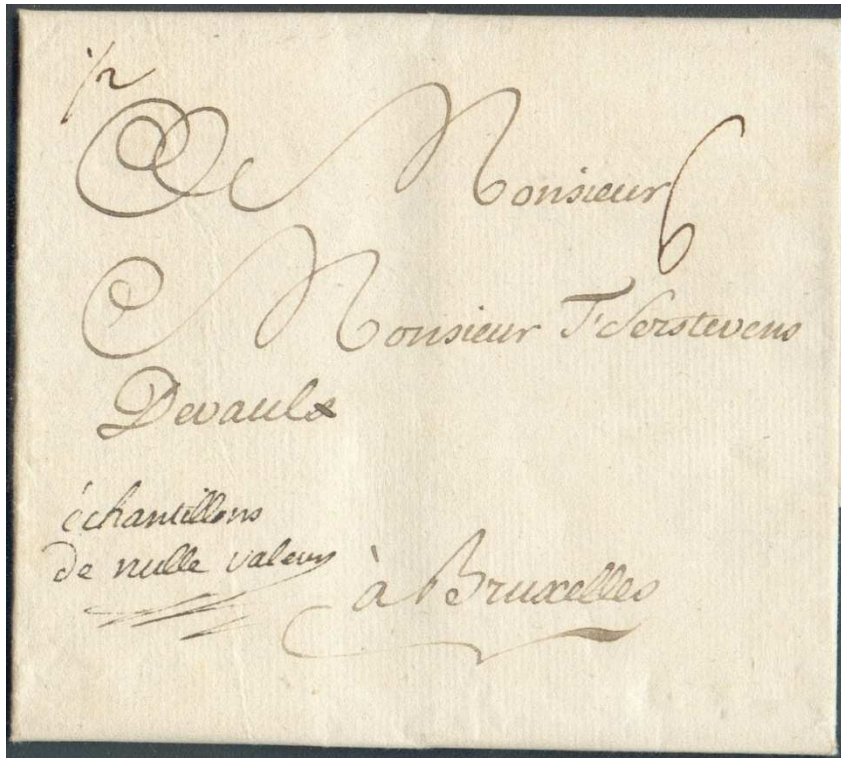 1/2
A Monsieur 6
Monsieur T'Serstevens
Devaulx
échantillons
de nulle valeur
à Bruxelles